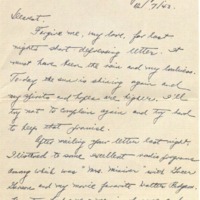 12/7/43.
Dearest.
Forgive me, my love, for last
night's short depressing letter. It
must have been the rain and my loneliness.
Today the sun is shining again and
my spirits and hopes are higher. I'll
try not to complain again and try hard
to keep that promise.
After mailing your letter last night
I listened to some excellent radio programs
among which was "Mrs. Miniver" with Greer
Garson and my movie favorite Walter Pidgeon.